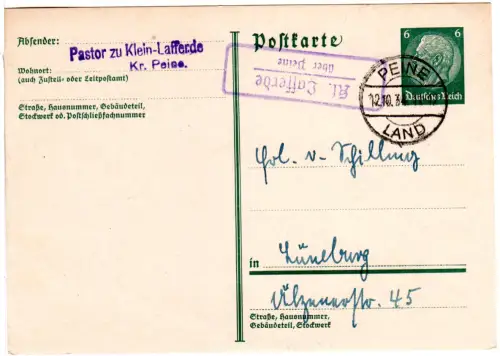 Absender:
Pastor zu Klein-Lafferde
Kr. Peine.
Wohnort:
(auch Zustell- oder Leitpostamt)
Straße, Hausnummer, Gebäudeteil,
Stockwerk od. Postschließfachnummer
Postkarte
Kl. Lafferde
über Peine
6 6
Deutsches Reich
PEINE
12.10.34
LAND
v. Schilling
in Lüneburg
Ülzenerstr. 45
Straße, Hausnummer,
Gebäudeteil, Stockwerk